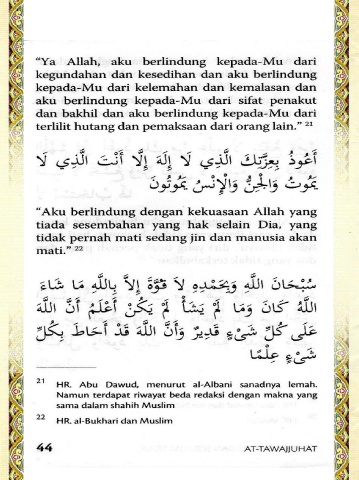 “Ya Allah, aku berlindung kepada-Mu dari
kegundahan dan kesedihan dan aku berlindung
kepada-Mu dari kelemahan dan kemalasan dan
aku berlindung kepada-Mu dari sifat penakut
dan bakhil dan aku berlindung kepada-Mu dari
terlilit hutang dan pemaksaan dari orang lain.” 21
أَعُوذُ بِعِزَّتِكَ الَّذِي لَا إِلَهَ إِلَّا أَنْتَ الَّذِي لَا
يَمُوتُ وَالْجِنُّ وَالْإِنْسُ يَمُوتُونَ
“Aku berlindung dengan kekuasaan Allah yang
tiada sesembahan yang hak selain Dia, yang
tidak pernah mati sedang jin dan manusia akan
mati.” 22
سُبْحَانَ اللَّهِ وَبِحَمْدِهِ لاَ قُوَّةَ إِلاَّ بِاللَّهِ مَا شَاءَ
اللَّهُ كَانَ وَمَا لَمْ يَشَأْ لَمْ يَكُنْ أَعْلَمُ أَنَّ اللَّهَ
عَلَى كُلِّ شَىْءٍ قَدِيرٌ وَأَنَّ اللَّهَ قَدْ أَحَاطَ بِكُلِّ
شَىْءٍ عِلْمًا
21 HR. Abu Dawud, menurut al-Albani sanadnya lemah.
Namun terdapat riwayat beda redaksi dengan makna yang
sama dalam shahih Muslim
22 HR. al-Bukhari dan Muslim
44 AT-TAWAJJUHAT